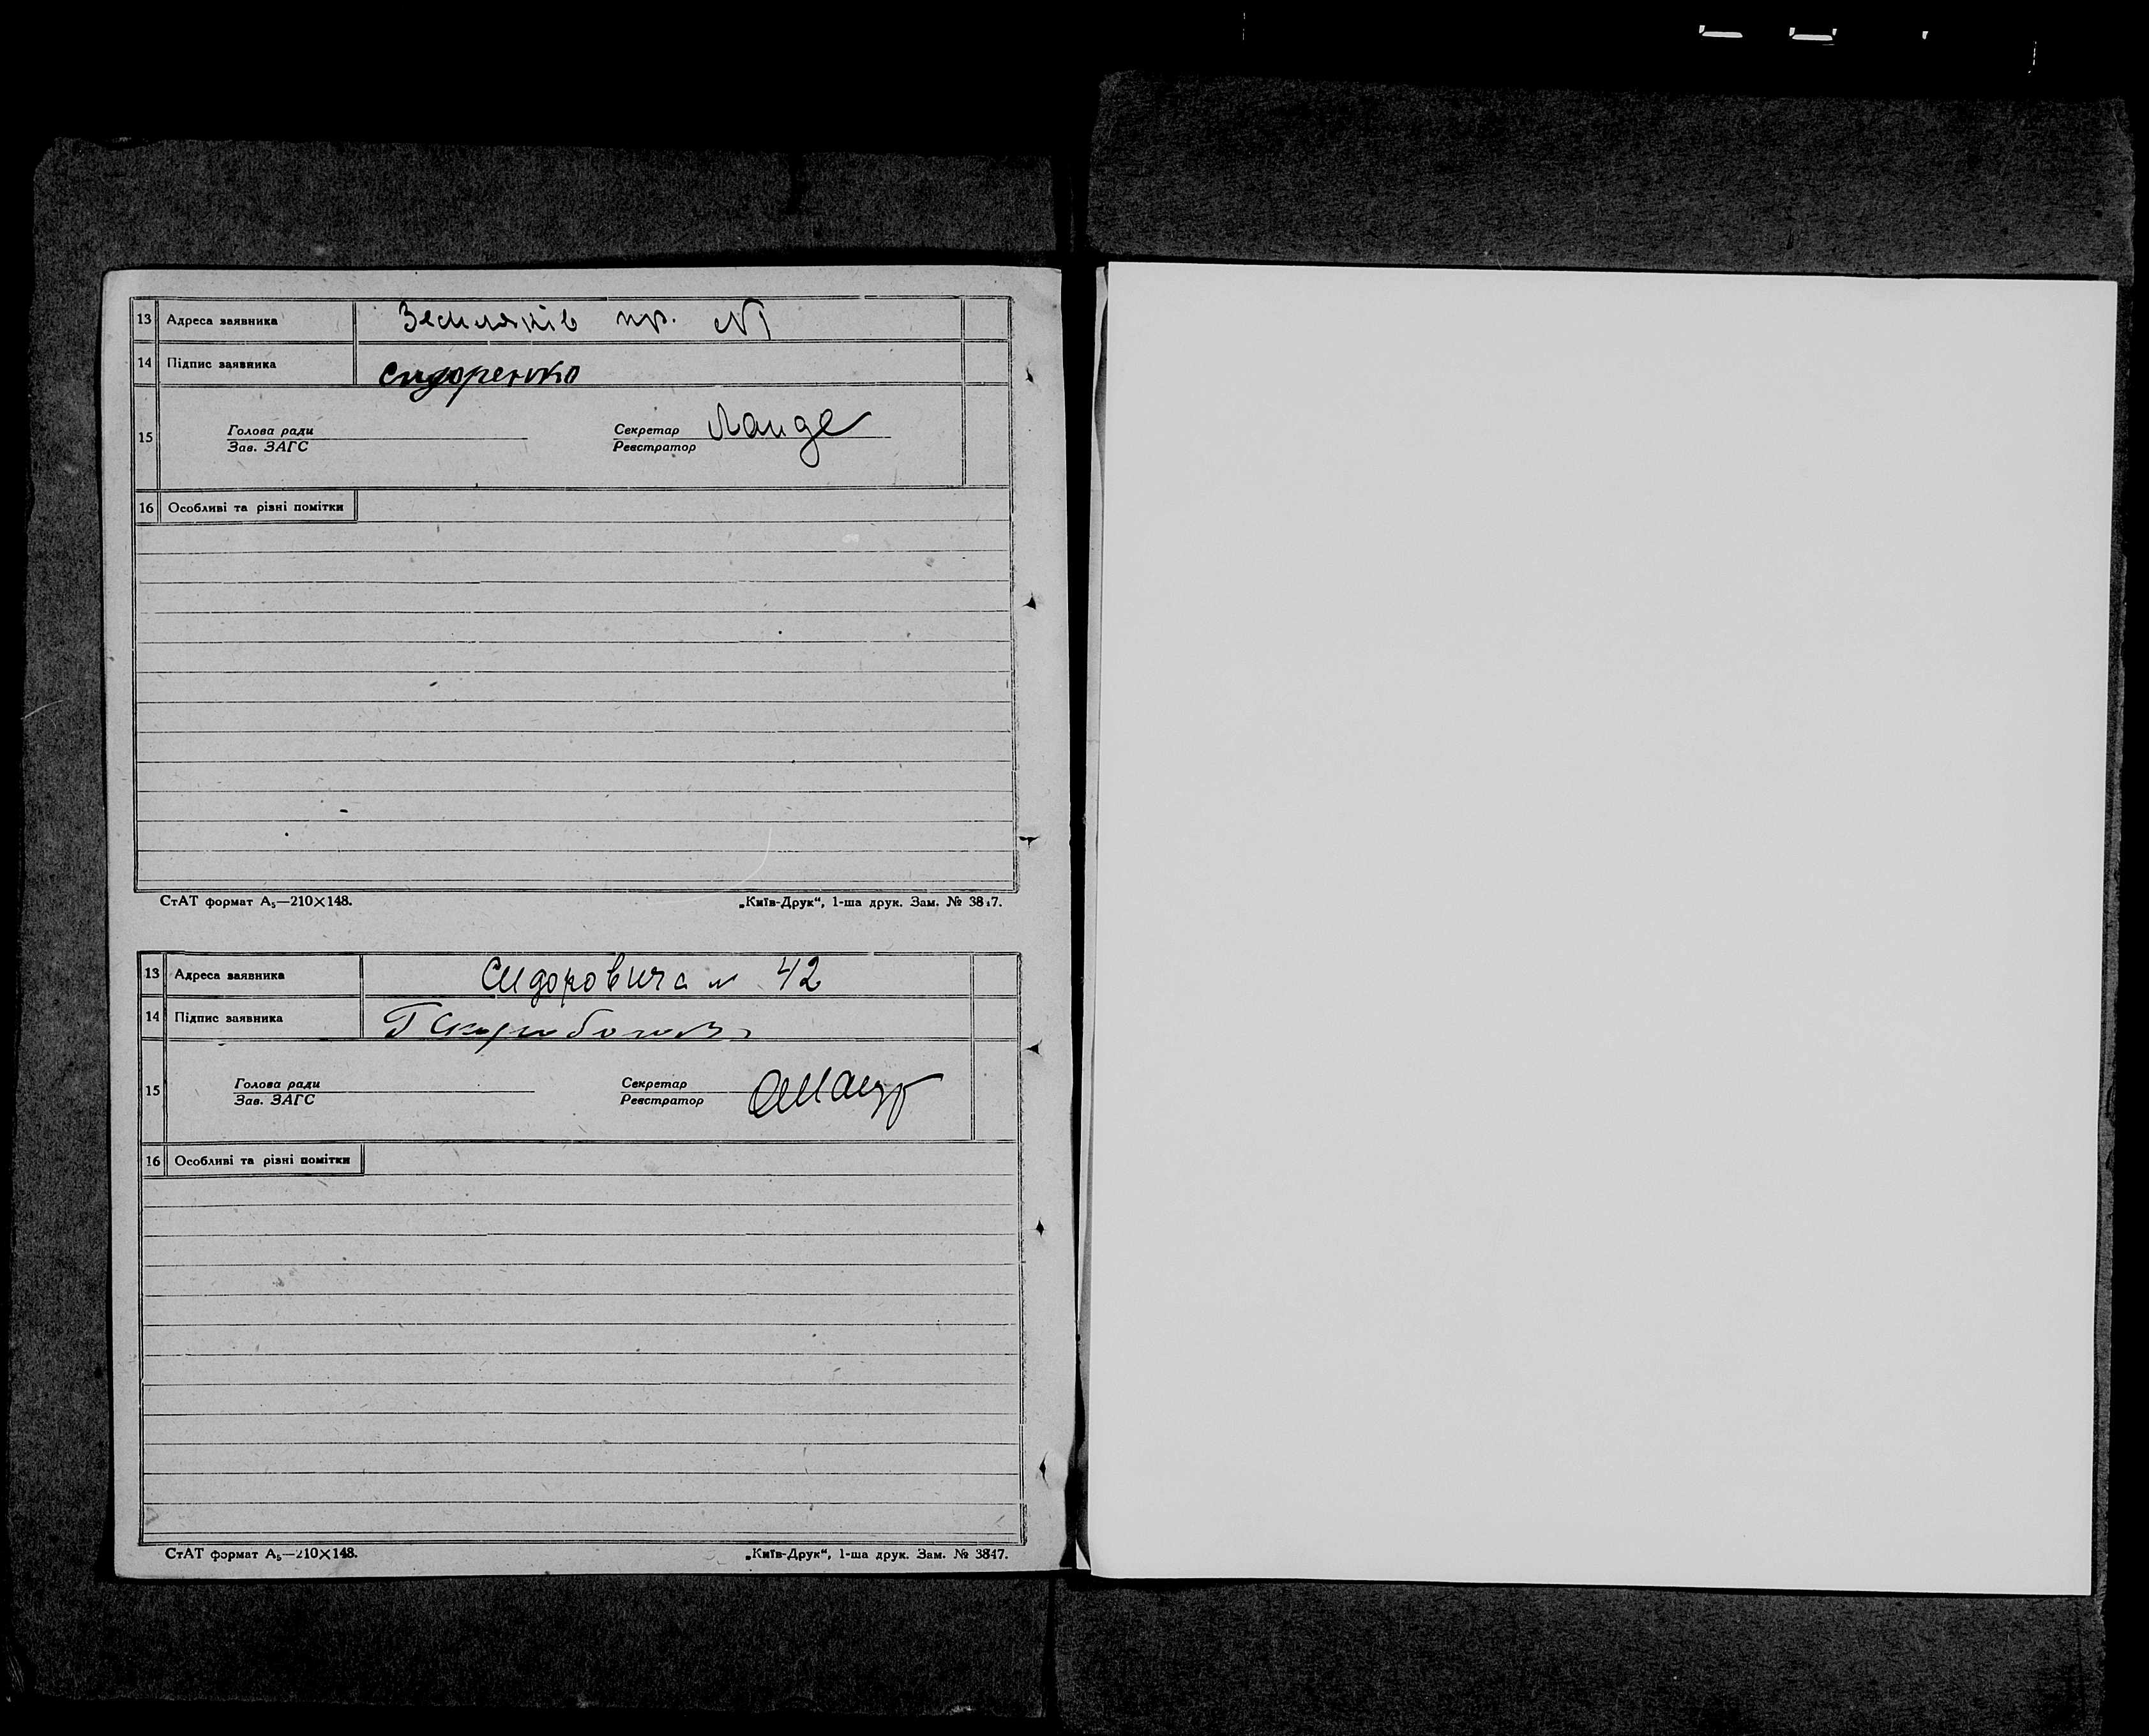 13 Адреса заявника Земляків пр. №1
14 Підпис заявника Сидоренко
15 Голова ради Секретар Ланде
Зав. ЗАГС Реєстратор
16 Особливі та різні помітки
СтАТ формат А₅—210×148. „Київ-Друк“, 1-ша друк. Зам. № 3847.
13 Адреса заявника Сидоровича № 42
14 Підпис заявника
15 Голова ради Секретар
Зав. ЗАГС Реєстратор
16 Особливі та різні помітки
СтАТ формат А₅—210×148. „Київ-Друк“, 1-ша друк. Зам. № 3847.